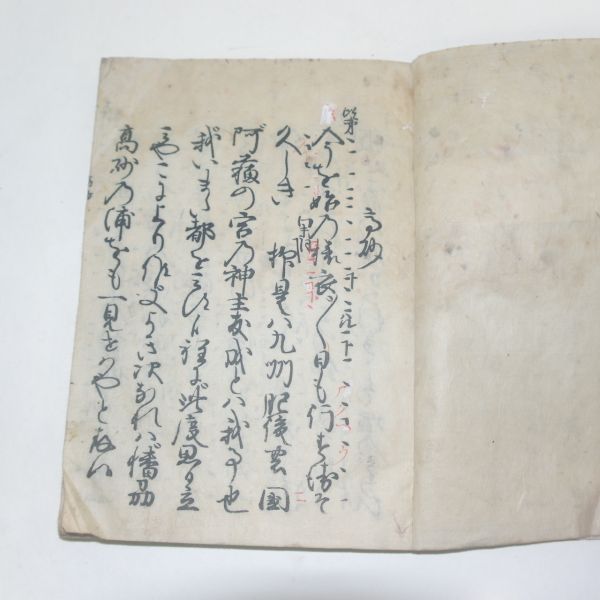 高砂
次第
今を始乃旅衣〱日も行末そ
久しき 抑是ハ九州肥後の國
阿蘓の宮乃神主友成とハ我事也
我いまた都を見す候程に此度思ひ立
みやこに上り候又よき次なれハ播州
高砂乃浦をも一見せはやと存候